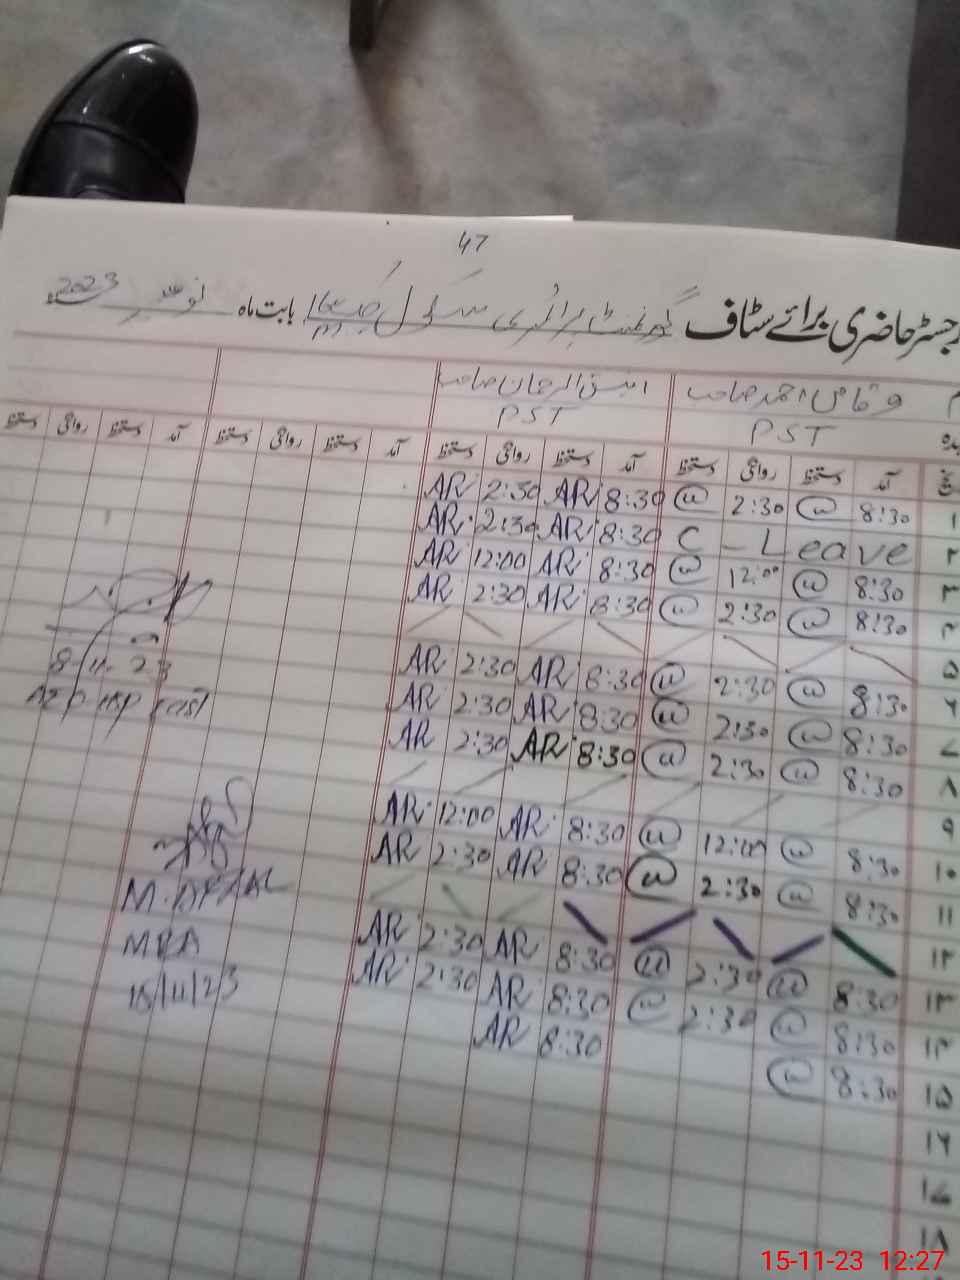 47
رجسٹر حاضری برائے سٹاف گورنمنٹ پرائمری سکول بابت ماہ نومبر 2023ء
وقاص احمد صاحب انیس الرحمان صاحب
PST PST
آمد دستخط روانگی دستخط آمد دستخط روانگی دستخط آمد دستخط روانگی دستخط آمد دستخط روانگی دستخط
AR 2:30 AR 8:30 @ 2:30 @ 8:30 ۱
AR 2:30 AR 8:30 C - Leave ۲
AR 12:00 AR 8:30 @ 12:00 @ 8:30 ۳
AR 2:30 AR 8:30 @ 2:30 @ 8:30 ۴
۵
AR 2:30 AR 8:30 @ 2:30 @ 8:30 ۶
AR 2:30 AR 8:30 @ 2:30 @ 8:30 ۷
AR 2:30 AR 8:30 @ 2:30 @ 8:30 ۸
۹
AR 12:00 AR 8:30 @ 12:00 @ 8:30 ۱۰
AR 2:30 AR 8:30 @ 2:30 @ 8:30 ۱۱
۱۲
AR 2:30 AR 8:30 @ 2:30 @ 8:30 ۱۳
AR 2:30 AR 8:30 @ 2:30 @ 8:30 ۱۴
AR 8:30 @ 8:30 ۱۵
۱۶
۱۷
۱۸
8-11-23
M. AFZAL
MEA
15/11/23
15-11-23 12:27